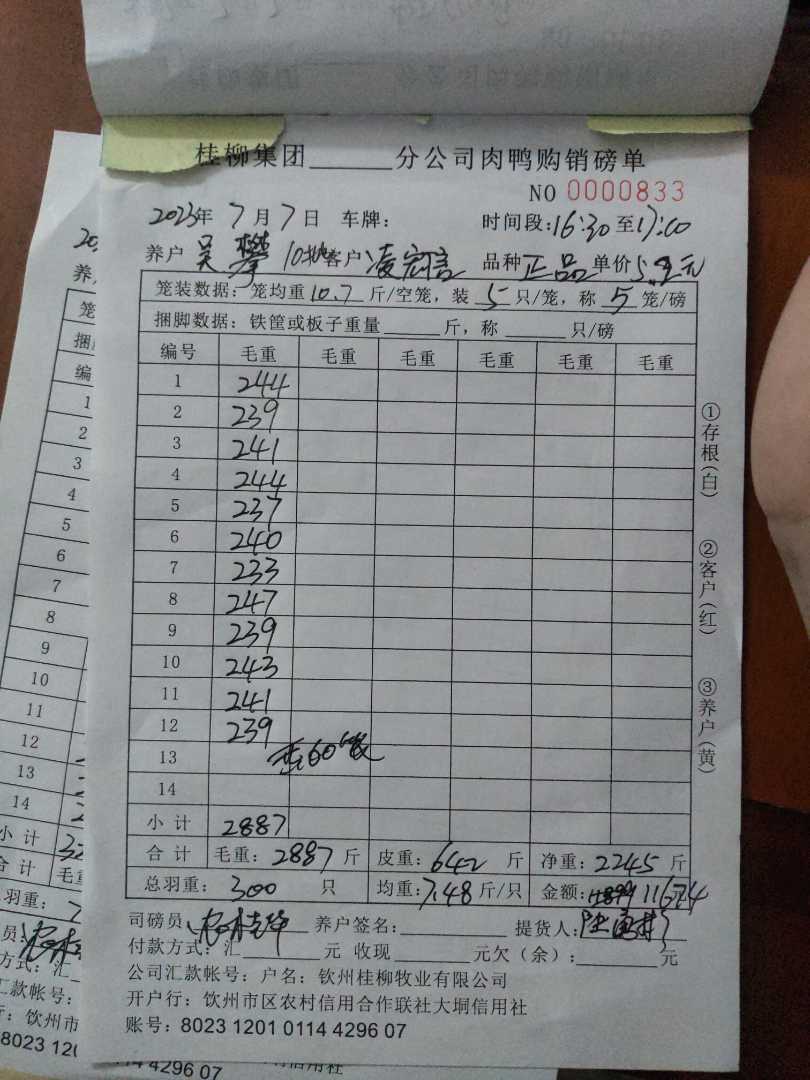 桂柳集团______分公司肉鸭购销磅单
NO 0000833
2023年7月7日 车牌: 时间段:16:30至17:00
养户 吴攀 10批 客户 凌宏言 品种 正品 单价5.2元
笼装数据: 笼均重10.7斤/空笼, 装5只/笼, 称5笼/磅
捆脚数据: 铁筐或板子重量______斤, 称______只/磅
编号 毛重 毛重 毛重 毛重 毛重 毛重
1 244
2 239
3 241
4 244
5 237
6 240
7 233
8 247
9 239
10 243
11 241
12 239
13 60
14
小计 2887
合计 毛重: 2887斤 皮重: 642斤 净重: 2245斤
总羽重: 300只 均重: 7.48斤/只 金额: 11674
司磅员 养户签名: 提货人:
付款方式: 汇______元 收现______元欠(余):______元
公司汇款帐号: 户名: 钦州桂柳牧业有限公司
开户行: 饮州市区农村信用合作联社大垌信用社
账号: 8023 1201 0114 4296 07
①存根(白)
②客户(红)
③养户(黄)
20
养
笼
捆
编
1
2
3
4
5
6
7
8
9
10
11
12
13
14
小计 32
合计 毛
羽重:
员:
方式: 汇
汇款帐号:
行: 饮州市
8023 120
114 4296 07